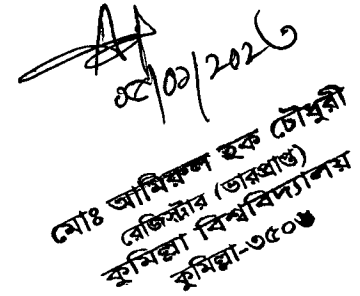 ০৫/০১/২০২৬
মোঃ আমিরুল হক চৌধুরী
রেজিস্ট্রার (ভারপ্রাপ্ত)
কুমিল্লা বিশ্ববিদ্যালয়
কুমিল্লা-৩৫০৬